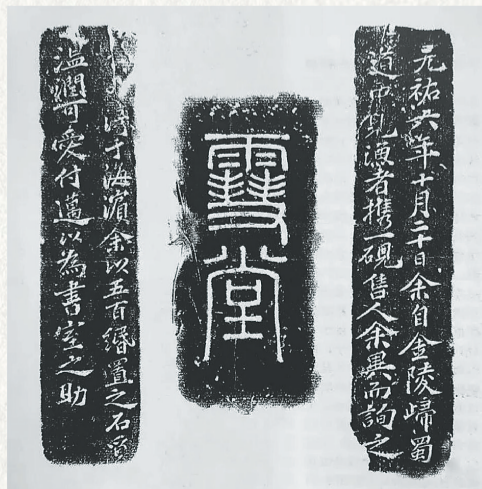 元祐六年十月二十日余自金陵歸蜀
道中見漁者攜硯售人余異而詢之
䨮堂
得于海濱余以五百緡置之石質
溫潤可愛付邁以為書室之助